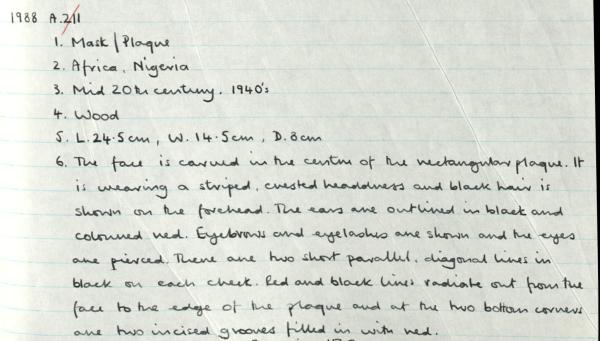 1988 A.211
1. Mask/Plaque
2. Africa, Nigeria
3. Mid 20th century. 1940's
4. Wood
5. L.24.5cm, W.14.5cm, D.8cm
6. The face is carved in the centre of the rectangular plaque. It
is wearing a striped, crested headdress and black hair is
shown on the forehead. The ears are outlined in black and
coloured red. Eyebrows and eyelashes are shown and the eyes
are pierced. There are two short parallel, diagonal lines in
black on each cheek. Red and black lines radiate out from the
face to the edge of the plaque and at the two bottom corners
are two incised grooves filled in with red.